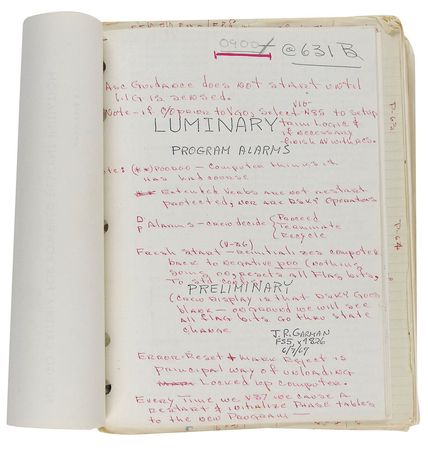 0900
@ 631 B
Asc Guidance does not start until
lil G is sensed.
Note - if C/O prior to V90, select N85 to setup
V16
trim logic &
if necessary
finish ΔV with RCS.
LUMINARY
PROGRAM ALARMS
(**) POODOO - Computer thinks it
has bad course
Extended Verbs are not restart
protected, nor are DSKY operators
D
P Alarms - crew decide { Proceed
Terminate
Recycle
(V-36)
Fresh start - Reinitializes computer
back to negative P00 (nothing
going on, resets all flag bits,
to std config
PRELIMINARY
(Crew display is that DSKY goes
blank - on ground we will see
all flag bits go thru state
change
J.R. GARMAN
FS5 x4826
6/9/69
Error Reset + Mark Reject is
principal way of unloading
Locked up computer.
Every time we V37 we cause a
restart & initialize phase tables
to the new program -
P-63
P-64